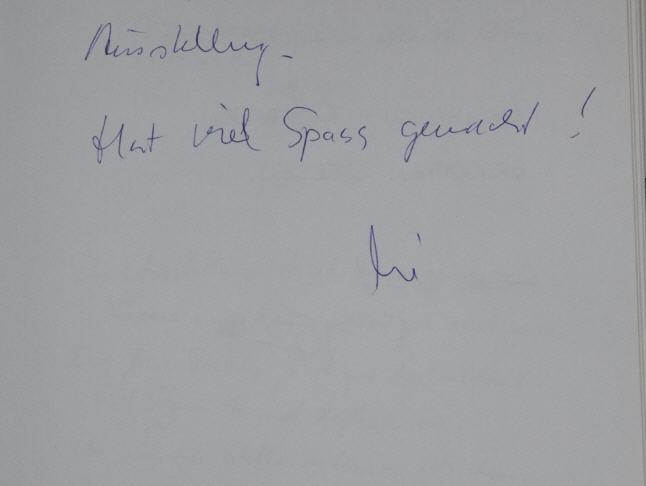 Ausstellung –
Hat viel Spass gemacht!